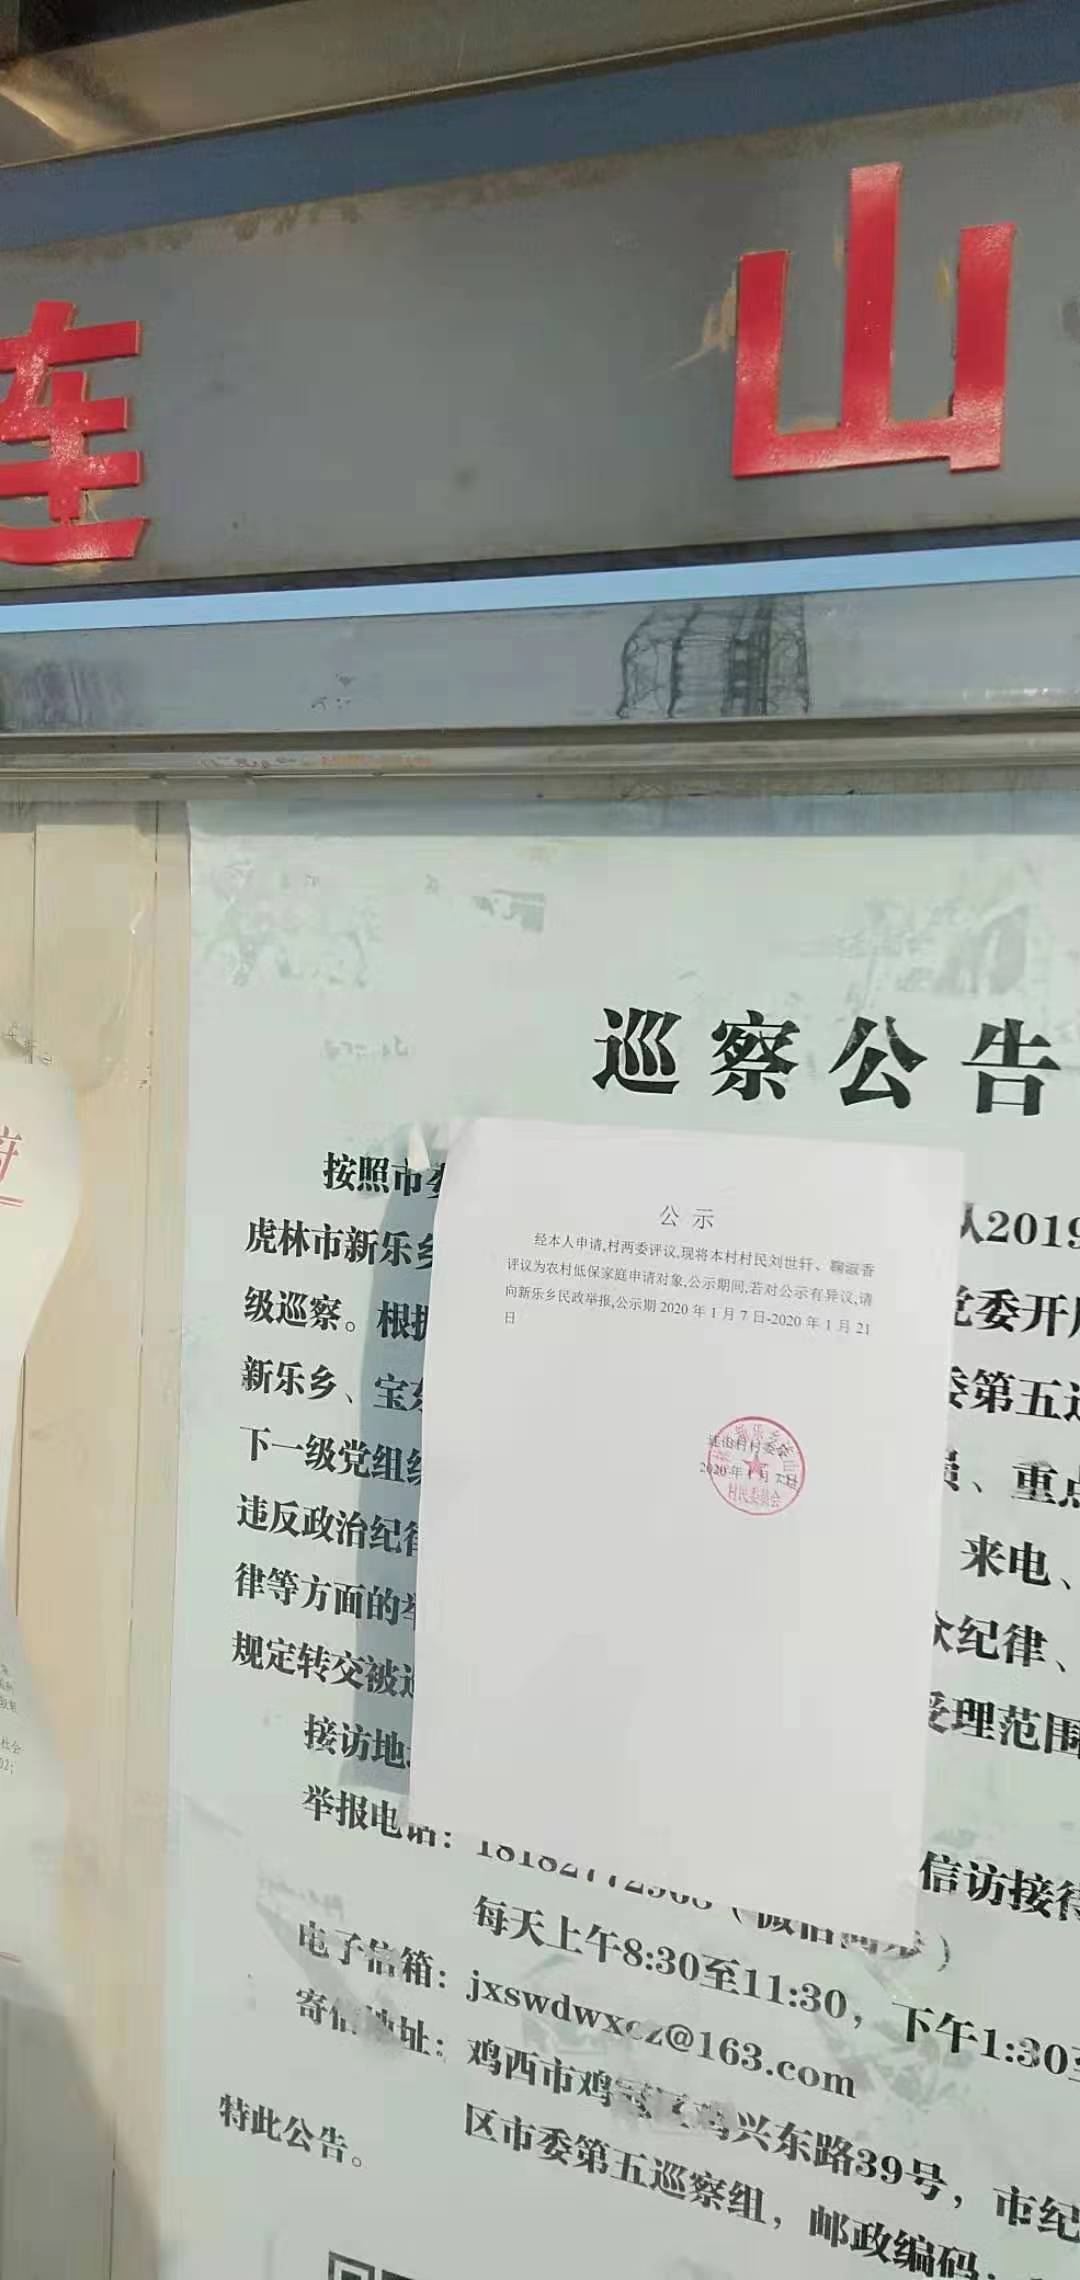 连 山
巡察公告
按照市委
从2019
虎林市新乐乡
党委开展
级巡察。根据
委第五巡
新乐乡、宝东
员、重点
下一级党组织
来电、
违反政治纪律
众纪律、
律等方面的举
受理范围
规定转交被巡
接访地
信访接待
举报电话：
每天上午8:30至11:30，下午1:30至
电子信箱：jxswdwxcz@163.com
寄信地址：鸡西市鸡冠区鸡兴东路39号，市纪
区市委第五巡察组，邮政编码：
特此公告。
公 示
经本人申请,村两委评议,现将本村村民刘世轩、鞠淑香
评议为农村低保家庭申请对象,公示期间,若对公示有异议,请
向新乐乡民政举报,公示期 2020 年 1 月 7 日-2020 年 1 月 21
日
连山村村委会
2020 年 1 月 7 日
村民委员会